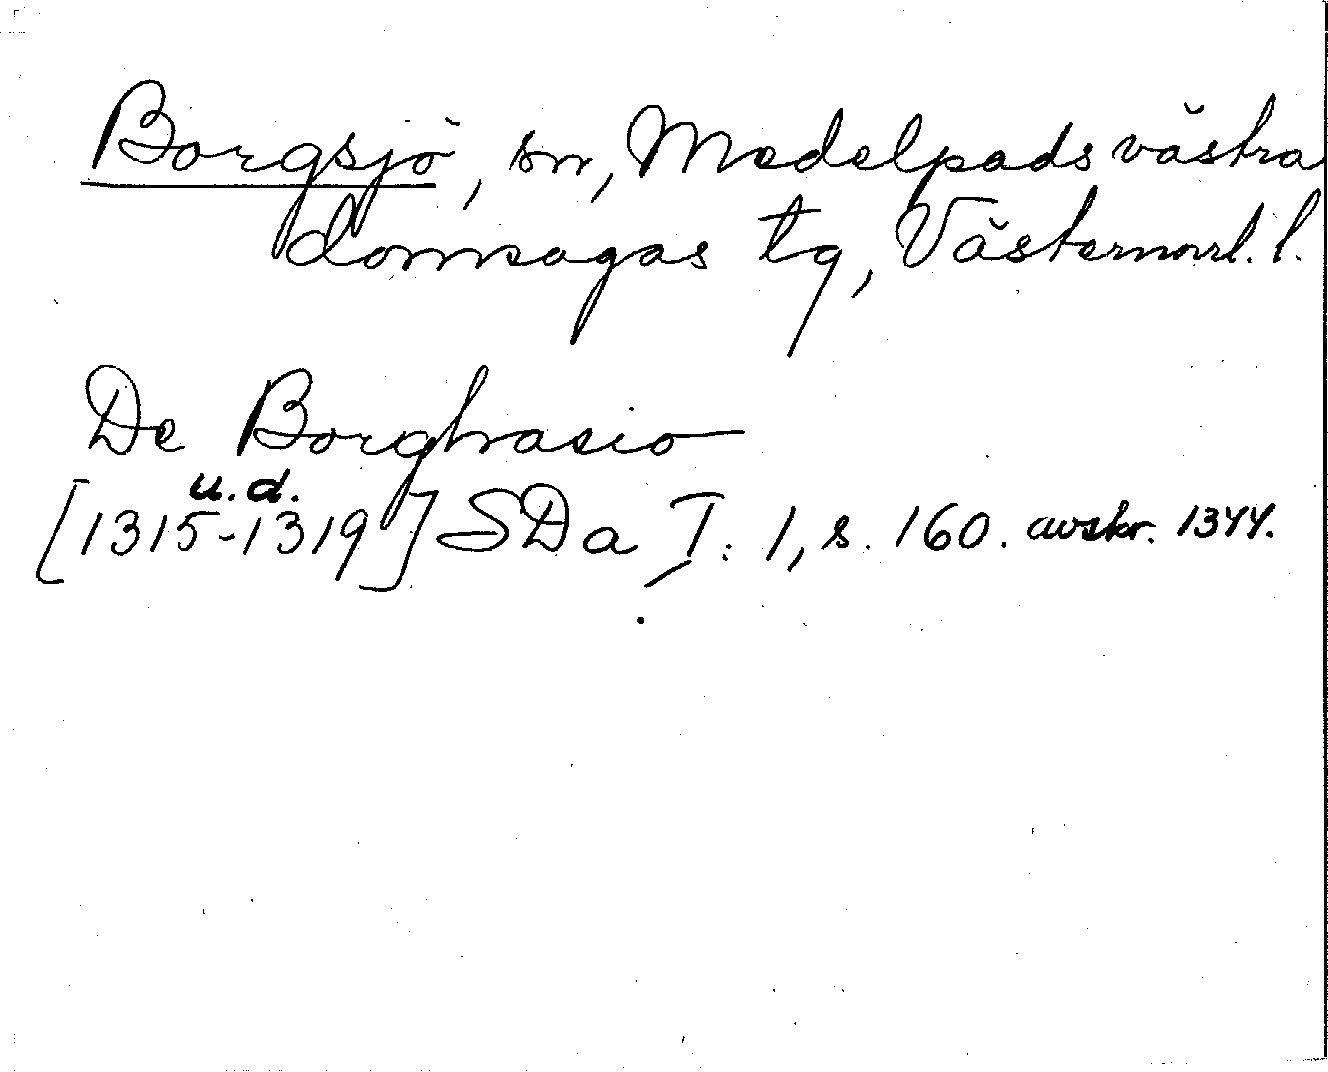 Borgsjö, sn, Medelpads västra
domsagas tg, Västernorrl. l.
De Borghasio
u. d.
[1315-1319] SDa I: 1, s. 160. avskr. 1344.